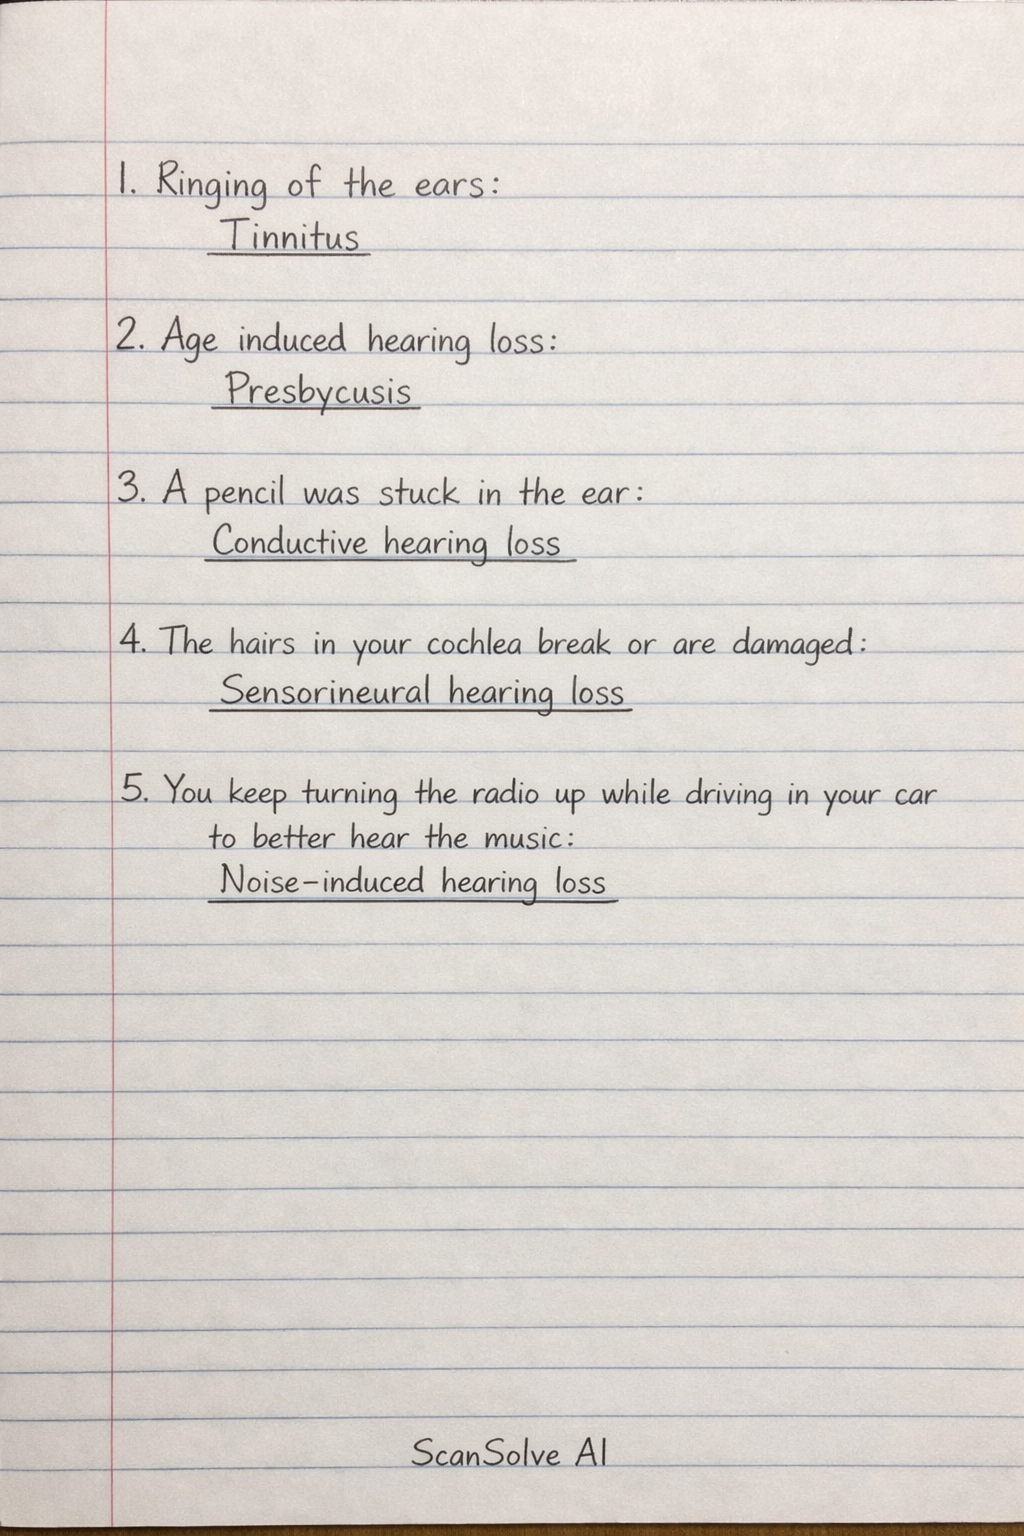 1. Ringing of the ears:
Tinnitus
2. Age induced hearing loss:
Presbycusis
3. A pencil was stuck in the ear:
Conductive hearing loss
4. The hairs in your cochlea break or are damaged:
Sensorineural hearing loss
5. You keep turning the radio up while driving in your car
to better hear the music:
Noise-induced hearing loss
ScanSolve AI